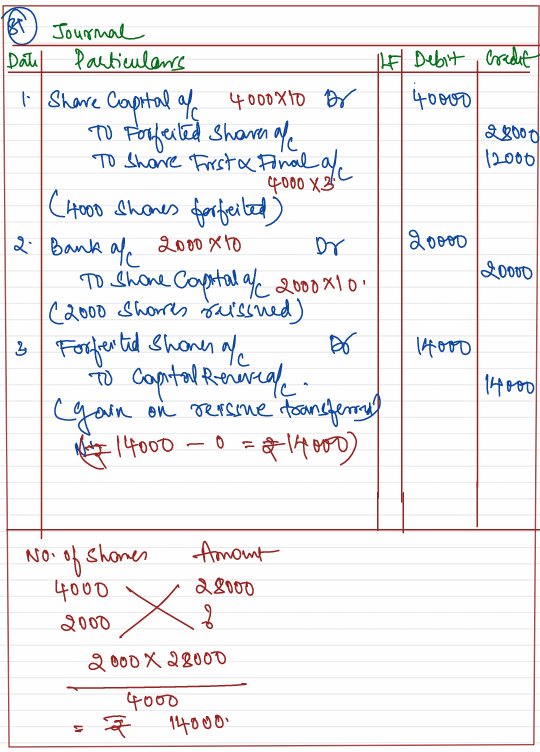 87 Journal
Date Particulars LF Debit Credit
1. Share Capital a/c 4000×10 Dr 40000
To Forfeited Shares a/c 28000
To Share First & Final a/c 12000
4000 × 3
(4000 Shares forfeited)
2. Bank a/c 2000×10 Dr 20000
To Share Capital a/c 2000×10. 20000
(2000 Shares reissued)
3 Forfeited Shares a/c Dr 14000
To Capital Reserve a/c. 14000
(gain on reissue transferred)
(₹ 14000 – 0 = ₹ 14000)
No. of Shares Amount
4000 28000
2000 ?
2000 × 28000
4000
= ₹ 14000.